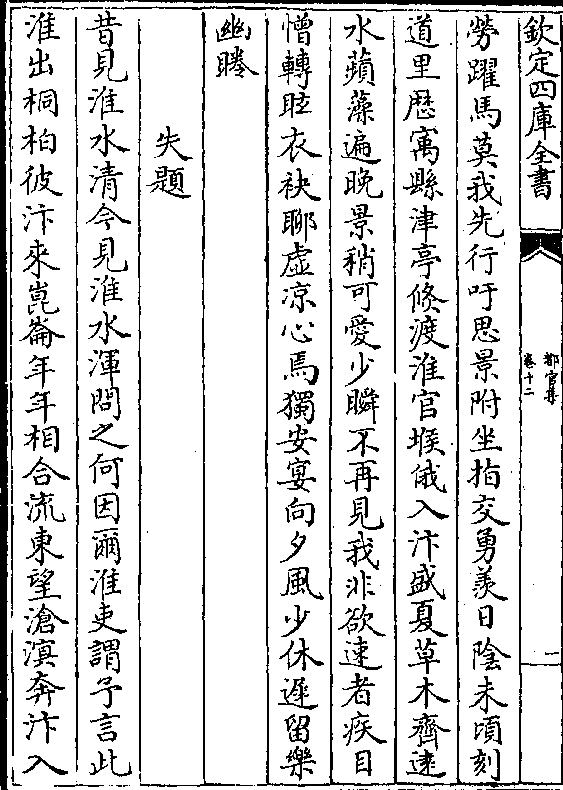 欽定四庫全書
都官集
卷十二
二
勞躍馬莫我先行吁思景附坐指交勇羨日陰未頃刻
道里歴寓縣津亭倐渡淮官堠俄入汴盛夏草木齊逺
水蘋藻遍晩景稍可愛少瞬不再見我非欲速者疾目
憎轉眩衣袂聊虛凉心焉獨安宴向夕風少休遲留樂
幽睠
失題
昔見淮水清今見淮水渾問之何因爾淮吏謂予言此
淮出桐柏彼汴來崑崙年年相合流東望滄溟奔汴入